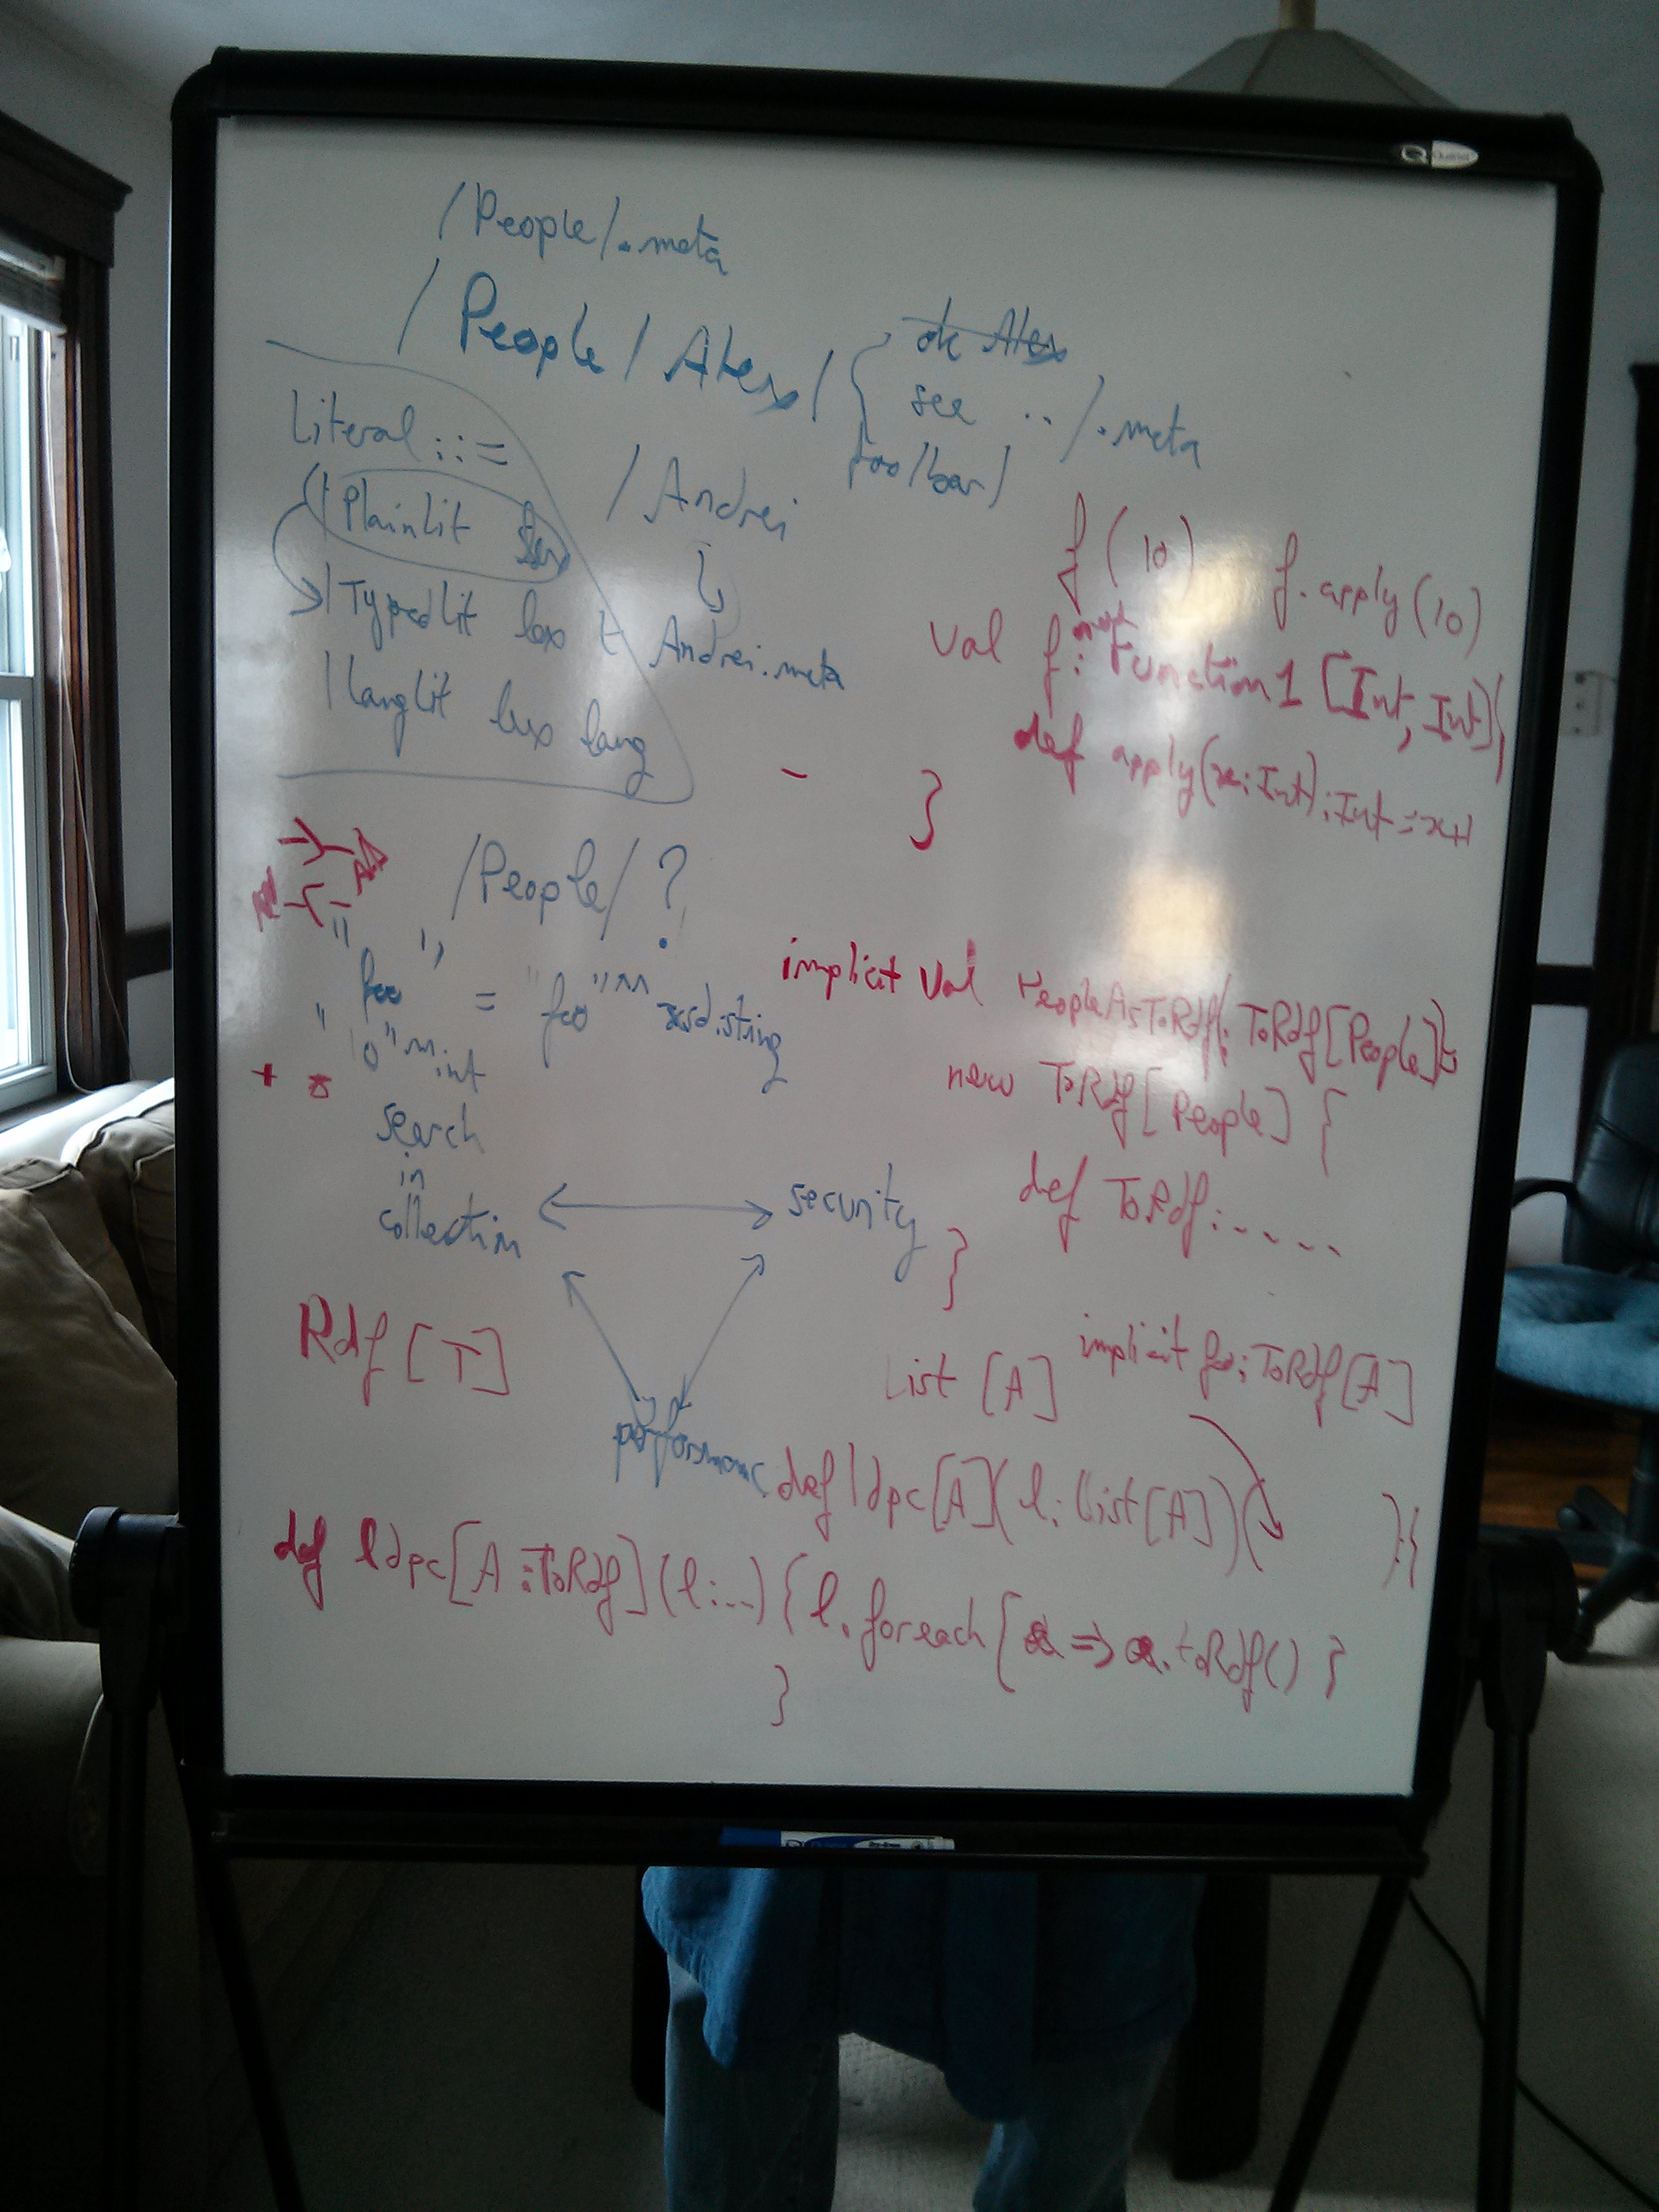 /People/.meta
/People/Alex/ { ok Alex
see ../.meta
foo/bar/
Literal ::=
| PlainLit
| TypedLit lex t
| LangLit lex lang
/Andrei
Andrei.meta
f(10) f.apply(10)
val f: Function1[Int, Int]{
def apply(x:Int):Int = x+1
}
/People/?
"foo" = "foo"^^xsd:string
"10"^^int
+ *
search
in
collection
security
performance
implicit val PeopleAsToRdf: ToRdf[People] =
new ToRdf[People] {
def ToRdf: .....
}
Rdf[T]
List[A] implicit foo: ToRdf[A]
def ldpc[A](l: List[A])( ){
def ldpc[A:ToRdf](l:...) { l.foreach{ a => a.toRdf() }
}